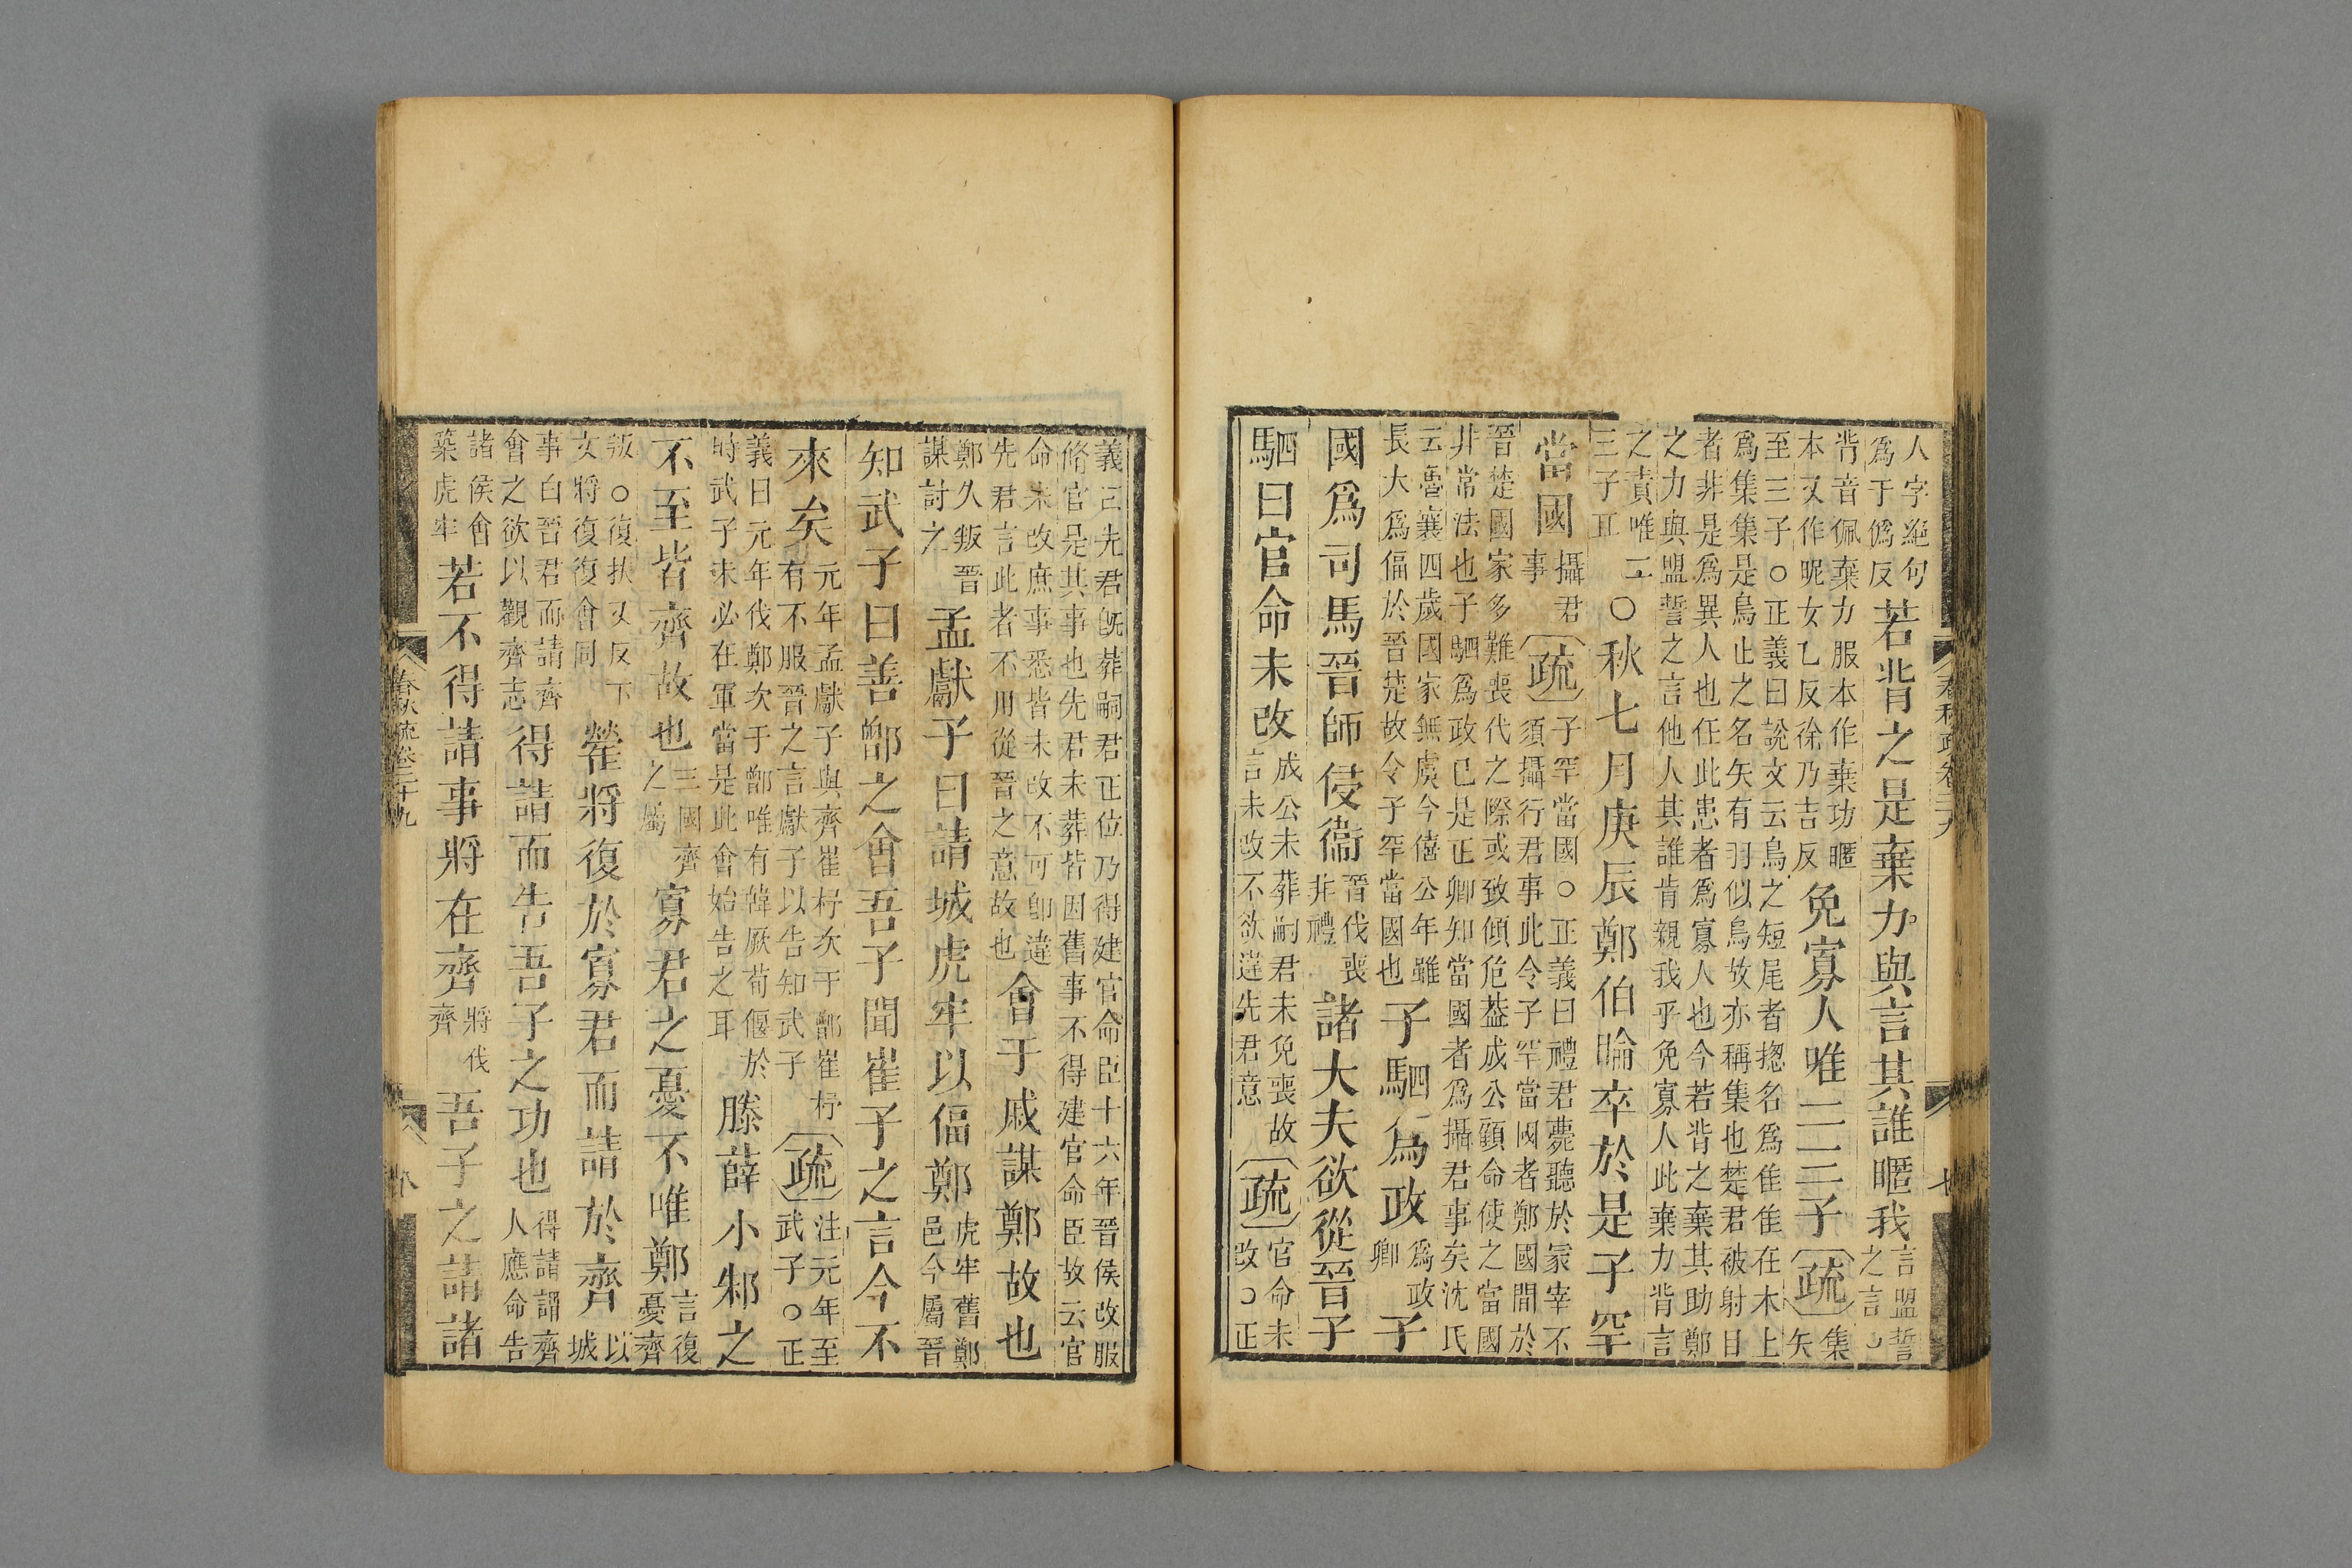 人字絕句爲于僞反若背之是棄力與言其誰暱我言盟誓之言○
背音佩棄力服本作棄功暱本又作昵女乙反徐乃吉反免寡人唯二三子疏集矢
至三子○正義曰說文云鳥之短尾者揔名爲隹隹在木上
爲集集是鳥止之名矢有羽似鳥故亦稱集也楚君被射目
者非是爲異人也任此患者爲寡人也今若背之棄其助鄭
之力與盟誓之言他人其誰肯親我乎免寡人此棄力背言
之責唯二三子耳○秋七月庚辰鄭伯睔卒於是子罕
當國攝君事疏子罕當國○正義曰禮君薨聽於冢宰不須攝行君事此令子罕當國者鄭國間於
晉楚國家多難喪代之際或致傾危葢成公顧命使之當國
非常法也子駟爲政已是正卿知當國者爲攝君事矣沈氏
云魯襄四歲國家無虞今僖公年雖長大爲偪於晉楚故令子罕當國也子駟爲政爲政卿子
國爲司馬晉師侵衞晉伐喪非禮諸大夫欲從晉子
駟曰官命未改成公未葬嗣君未免喪故言未改不欲違先君意疏官命未改○正
義曰先君旣葬嗣君正位乃得建官命臣十六年晉侯改服
脩官是其事也先君未葬皆因舊事不得建官命臣故云官
命未改庶事悉皆未改不可卽違先君言此者不用從晉之意故也會于戚謀鄭故也
鄭久叛晉謀討之孟獻子曰請城虎牢以偪鄭虎牢舊鄭邑今屬晉
知武子曰善鄫之會吾子聞崔子之言今不
來矣元年孟獻子與齊崔杼次于鄫崔杼有不服晉之言獻子以告知武子疏注元年至武子○正
義曰元年伐鄭次于鄫唯有韓厥荀偃於時武子未必在軍當是此會始告之耳滕薛小邾之
不至皆齊故也三國齊之屬寡君之憂不唯鄭言復憂齊
叛○復扶又反下文將復復會同罃將復於寡君而請於齊以城
事白晉君而請齊會之欲以觀齊志得請而告吾子之功也得請謂齊人應命告
諸侯會築虎牢若不得請事將在齊將伐齊吾子之請諸
春秋疏卷二十九
八
七